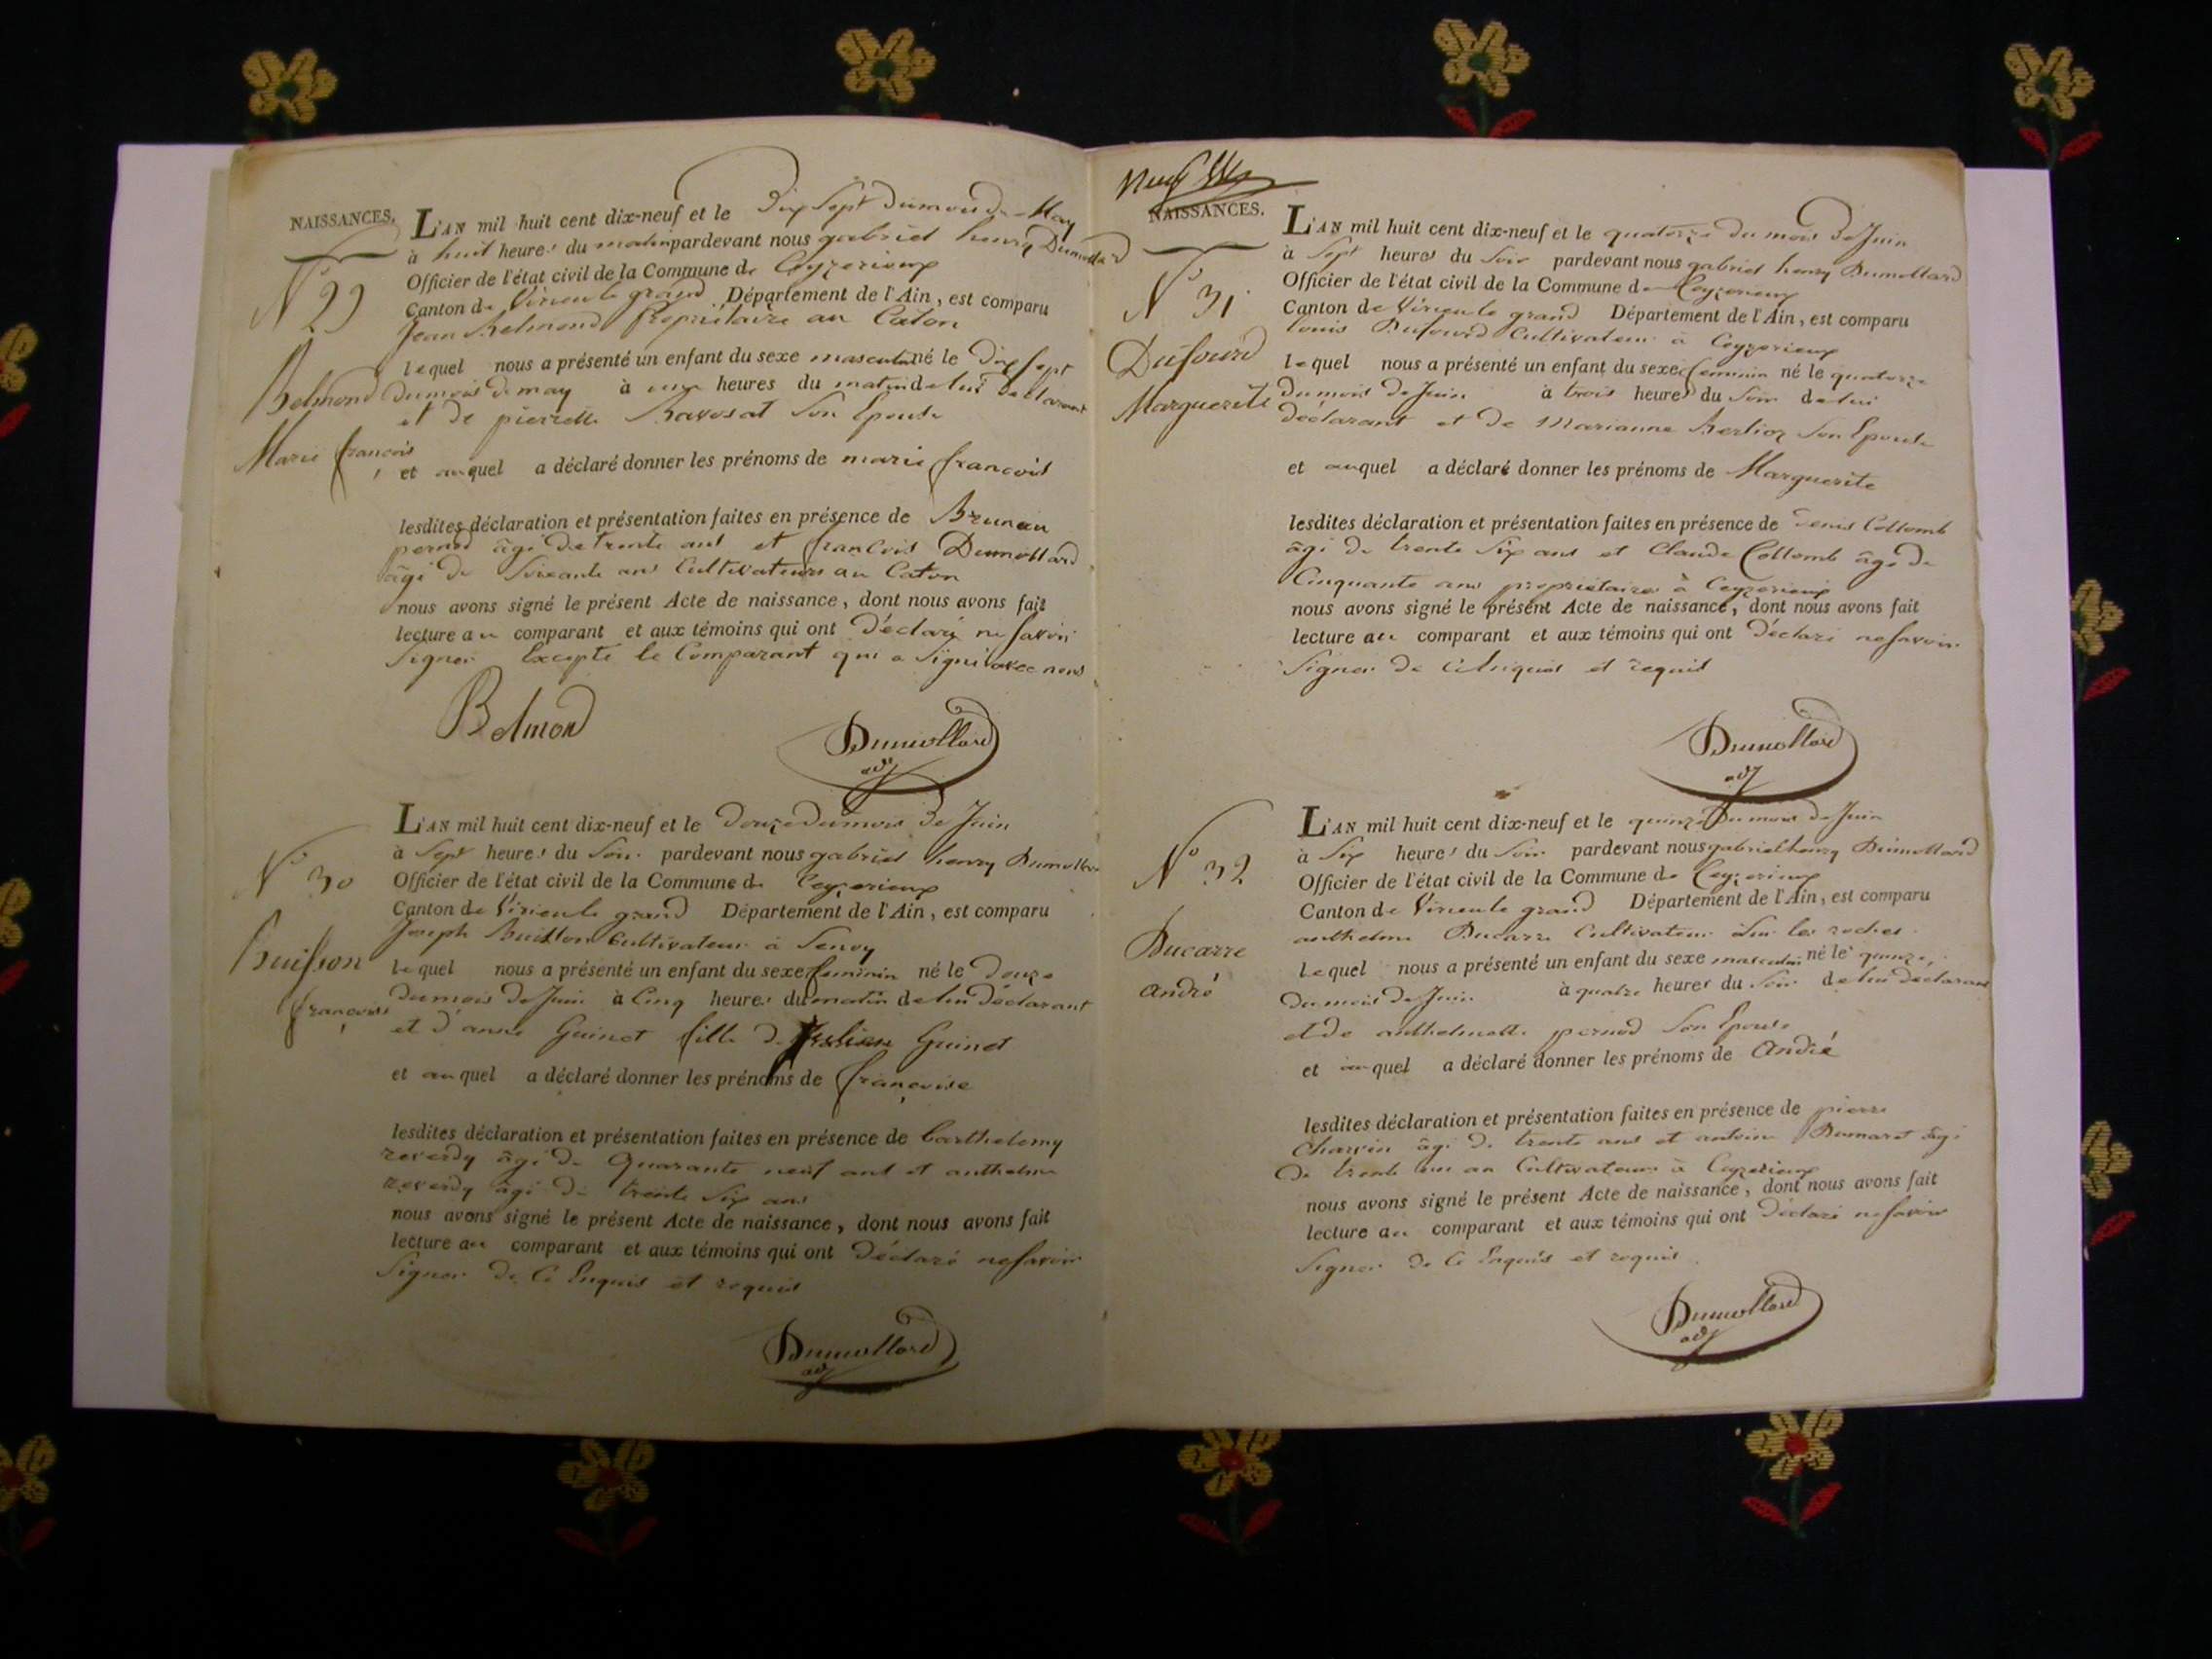 NAISSANCES.
L'AN mil huit cent dix-neuf et le Dix Sept du mois de May
à huit heures du matin pardevant nous gabriel henry Dumollard
N° 29
Officier de l'état civil de la Commune de Ceyzerieux
Canton de Virieu le grand Département de l'Ain, est comparu
Jean Belmond propriétaire au Caton
lequel nous a présenté un enfant du sexe masculin né le Dix Sept
Belmond
du mois de may à heures du matin de lui Déclarant
et de pierrette Ravosat Son Epouse
Marie françois
et auquel a déclaré donner les prénoms de marie françois
lesdites déclaration et présentation faites en présence de Bruneau
pernod âgé de trente ans et françois Dumollard
âgé de Soixante ans Cultivateurs au Caton
nous avons signé le présent Acte de naissance, dont nous avons fait
lecture au comparant et aux témoins qui ont Déclaré ne Savoir
Signer Excepté le Comparant qui a Signé avec nous
Belmond
Dumollard
adj
L'AN mil huit cent dix-neuf et le Douze du mois de Juin
à Sept heures du Soir pardevant nous gabriel henry Dumollard
N° 30
Officier de l'état civil de la Commune de Ceyzerieux
Canton de Virieu le grand Département de l'Ain, est comparu
Joseph Buisson Cultivateur à Senoy
Buisson
lequel nous a présenté un enfant du sexe feminin né le Douze
françoise
du mois de Juin à Cinq heures du matin de lui Déclarant
et d'anne Guinet fille de Guinet
et auquel a déclaré donner les prénoms de françoise
lesdites déclaration et présentation faites en présence de barthelemy
reverdy âgé de Quarante neuf ans et anthelme
reverdy âgé de trente Six ans
nous avons signé le présent Acte de naissance, dont nous avons fait
lecture au comparant et aux témoins qui ont Déclaré ne Savoir
Signer De Ce Enquis et requis
Dumollard
adj
NAISSANCES.
L'AN mil huit cent dix-neuf et le quatorze du mois de Juin
à Sept heures du Soir pardevant nous gabriel henry Dumollard
N° 31
Officier de l'état civil de la Commune de Ceyzerieux
Canton de Virieu le grand Département de l'Ain, est comparu
louis Dufourd Cultivateur à Ceyzerieux
Dufourd
lequel nous a présenté un enfant du sexe feminin né le quatorze
Marguerite
du mois de Juin à trois heures du Soir de lui
déclarant et de Marianne Berlioz Son Epouse
et auquel a déclaré donner les prénoms de Marguerite
lesdites déclaration et présentation faites en présence de Denis Collomb
âgé de trente Six ans et Claude Collomb âgé de
Cinquante ans propriétaires à Ceyzerieux
nous avons signé le présent Acte de naissance, dont nous avons fait
lecture au comparant et aux témoins qui ont Déclaré ne Savoir
Signer de Ce Enquis et requis
Dumollard
adj
L'AN mil huit cent dix-neuf et le quinze Du mois de Juin
à Six heures du Soir pardevant nous gabriel henry Dumollard
N° 32
Officier de l'état civil de la Commune de Ceyzerieux
Canton de Virieu le grand Département de l'Ain, est comparu
anthelme Ducarre Cultivateur Sur les roches
Ducarre
lequel nous a présenté un enfant du sexe masculin né le quinze
andré
Du mois de Juin à quatre heures du Soir de lui Déclarant
et de anthelmette pernod Son Epouse
et auquel a déclaré donner les prénoms de André
lesdites déclaration et présentation faites en présence de pierre
Charvin âgé de trente ans et antoine Dumaret âgé
De trente un an Cultivateurs à Ceyzerieux
nous avons signé le présent Acte de naissance, dont nous avons fait
lecture au comparant et aux témoins qui ont Déclaré ne Savoir
Signer De Ce Enquis et requis
Dumollard
adj